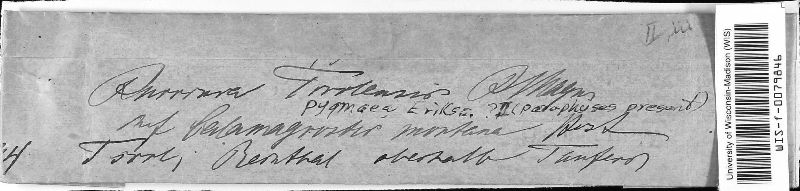 II, iii
Puccinia Tirolensis P. Magn.
pygmaea, Eriks. ? II (paraphyses present)
auf Calamagrostis montana Host
Tirol, Reinthal oberhalb Taufers
University of Wisconsin-Madison (WIS)
WIS-f-0079846